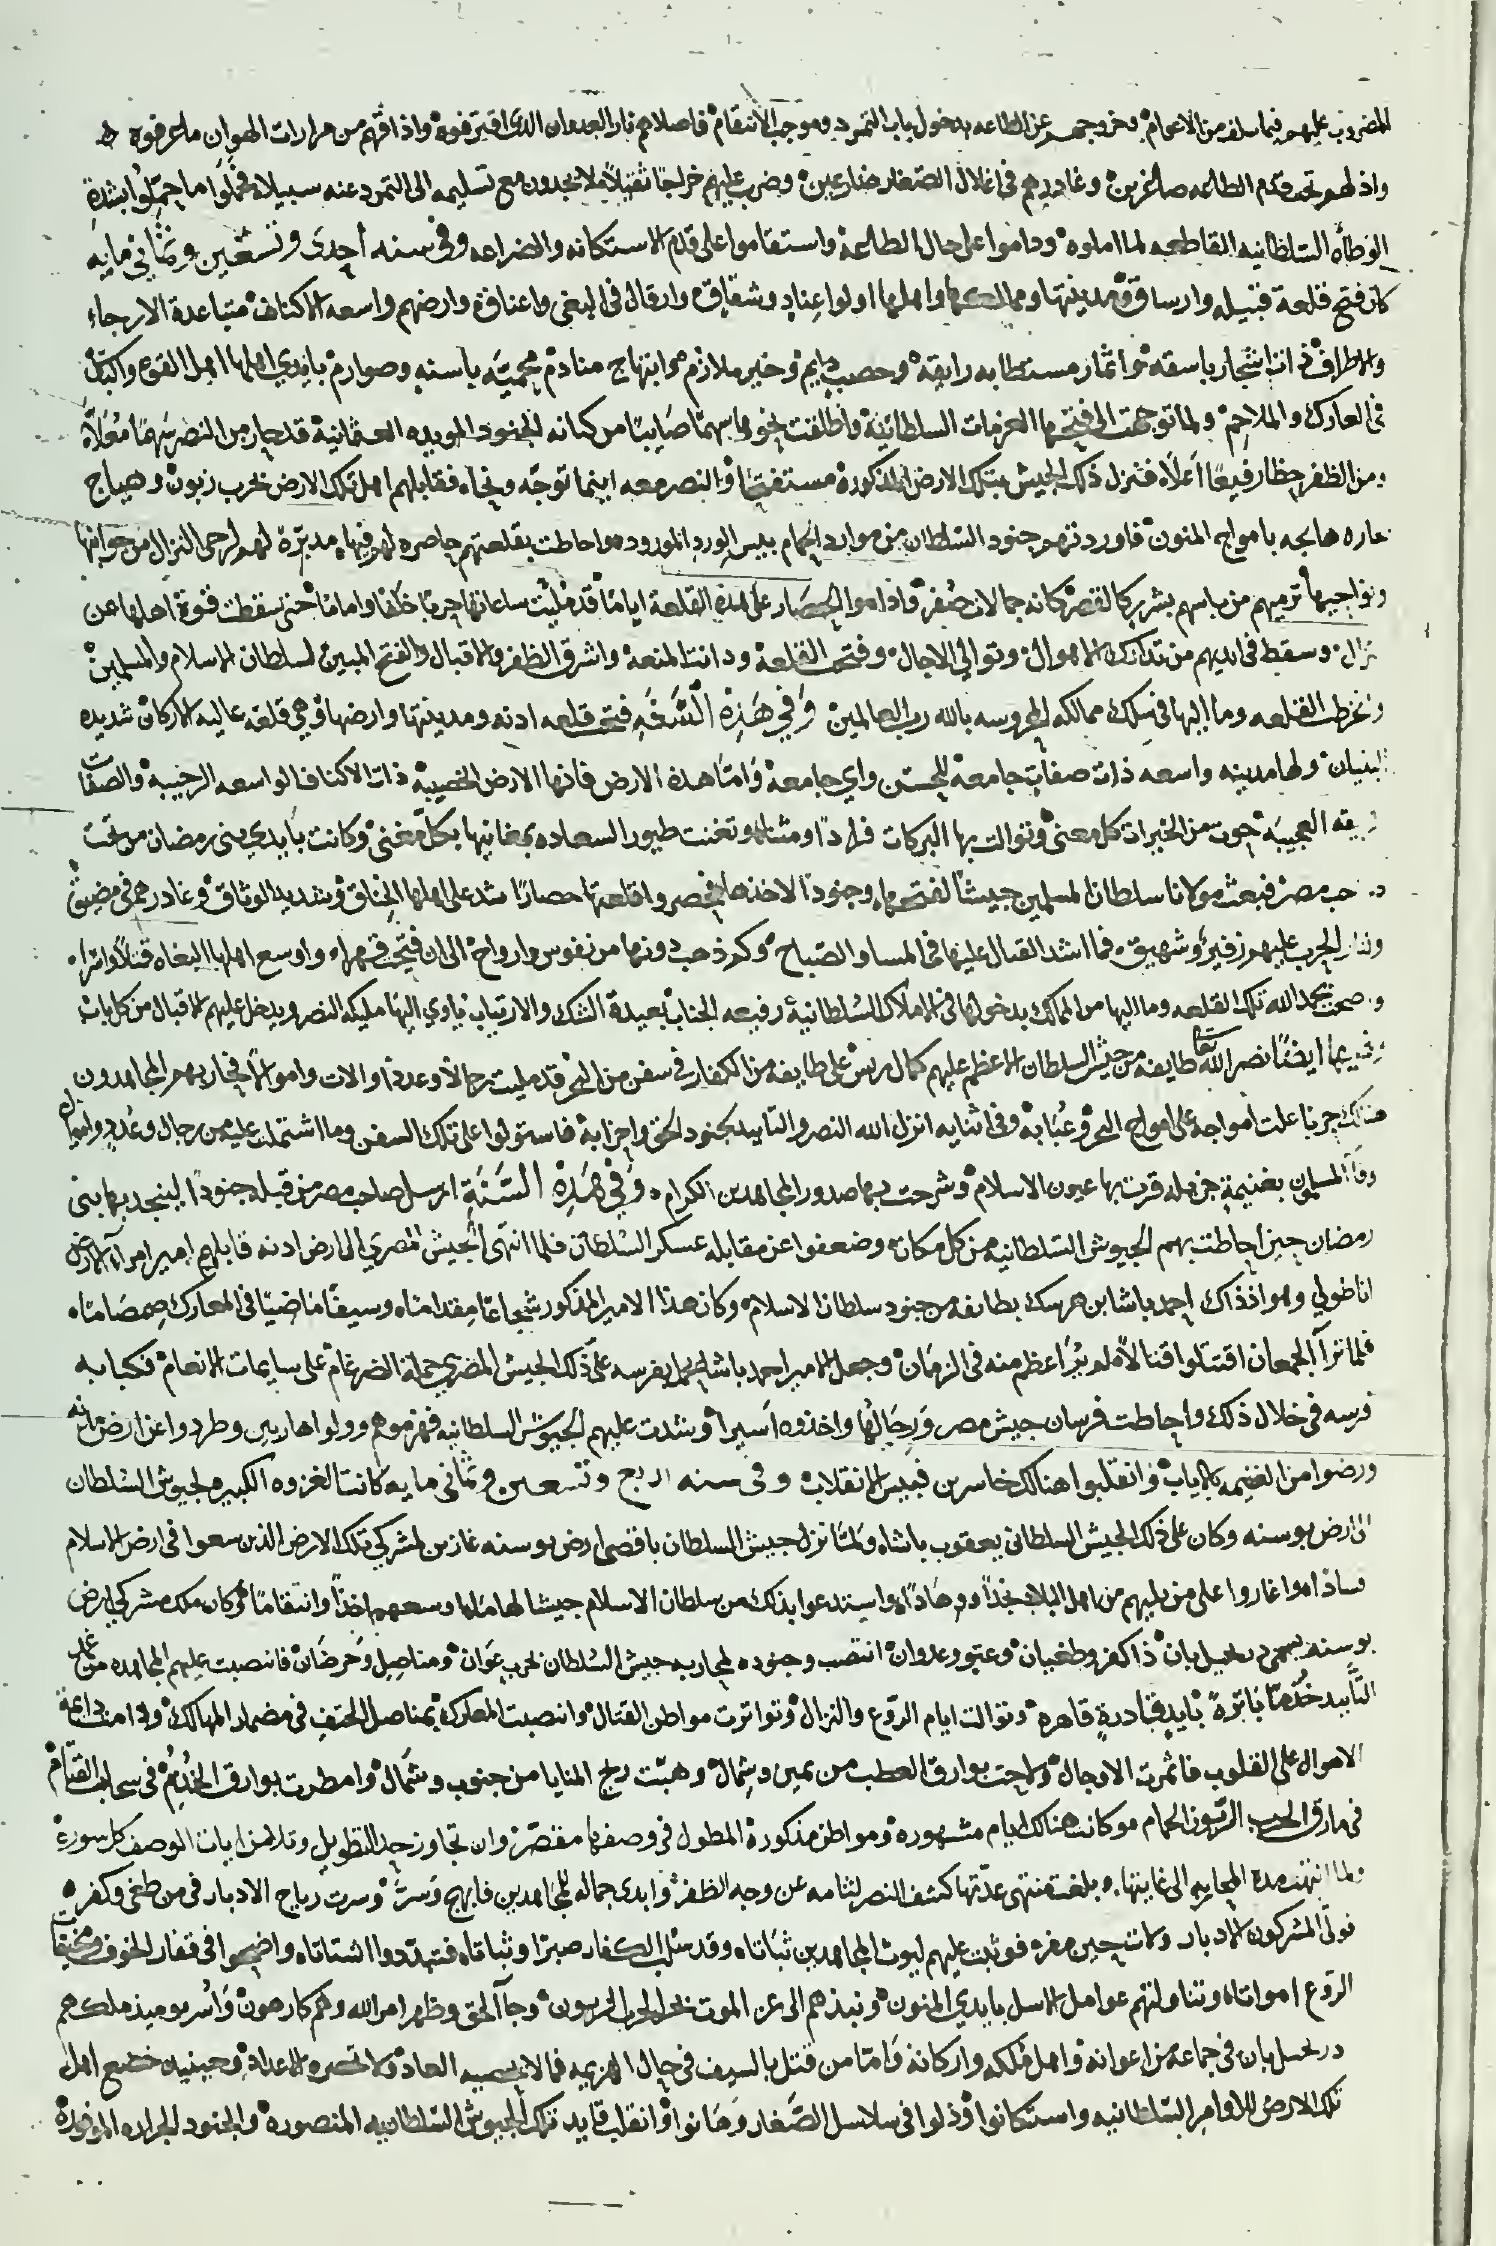 المضروب عليهم فيما سلف من الاعوام وخروجهم عن الطاعه بدخول باب التمرد وموجب الانتقام فاصلاهم نار العدوان الذى اقترفوه واذاقهم من مرارات الهوان ما عرفوه
واذلهم تحت قدم الطاعه صاغرين وغادرهم فى اغلال الصغار ضارعين وضرب عليهم خراجا ثقيلا لا يجدون مع تسليمه الى التمرد عنه سبيلا فحملوا ما حملوا بشدة
الوطأه السلطانيه القاطعه لما املوه وداموا على حال الطاعة واستقاموا على قدم الاستكانه والضراعه وفى سنه احدى وتسعين وثمانى مايه
كان فتح قلعة قبيله وارساق ومدينتها وممالكها واهلها اولوا عناد وشقاق وارقال فى البغى واعناق وارضهم واسعه الاكناف متباعدة الارجاء
والاطراف ذات اشجار باسقه واثمار مستطابه رايقة وخصب دايم وخير ملازم وابتهاج منادم محميه باسنه وصوارم بايدي اهلها اهل القوع واكبل
فى المعارك والملاحم ولما توجهت الى فتحها العزمات السلطانية واطلقت نحوها سهما صايبا من كنانه الجنود المويده العثمانية قد حاز من النصر سهما معلا
ومن الظفر حظا رفيعا اعلاه فنزل ذلك الجيش بتلك الارض المذكورة مستفتحا والنصر معه اينما توجه ونحاه فقابلهم اهل تلك الارض بحرب زبون وهياج
هايجه بامواج المنون فاوردتهم جنود السلطان من موارد الحمام بيس الورد المورود واحاطت بقلعتهم حاصره لهم فيها مديرة لهم لرحى النزال من جوانبها
ونواحيها ترميهم من باسهم بشرر كالقصر كانه جمالات صفر واداموا الحصار على هذه القلعة اياما قد مليت ساعاتها حربا خلفا واماما حتى سقطت قوة اهلها عن
نزال وسقط فى ايديهم من تدارك الاهوال وتوالي الاجال وفتحت القلعة ودانت المنعة واشرق الظفر والاقبال والفتح المبين لسلطان الاسلام والمسلمين
وانخرطت القلعه وما اليها فى سلك ممالكه المحروسه بالله رب العالمين وفي هذه السنة فتحت قلعه ادنه ومدينتها وارضها وهي قلعه عاليه الاركان شديده
البنيان ولها مدينه واسعه ذات صفات جامعة للحسن واي جامعة واما هذه الارض فانها الارض الخصيبة ذات الاكناف الواسعه الرحيبة والصفات
العجيبه حوت من الخيرات كل معنى وتوالت بها البركات فرادا ومثنا وتغنت طيور السعاده بمغانيها بكل مغنى وكانت بايدي بنى رمضان من تحت
صاحب مصر فبعث مولانا سلطان المسلمين جيشا لفتحها وجنودا لاخذها فحصروا قلعتها حصارا شد على اهلها الخناق وشديد الوثاق وغادرهم فى مضيق
ونار الحرب عليهم زفير وشهيق فما اشد القتال عليها فى المسا والصباح وكم ذهب دونها من نفوس وارواح الى ان فتحت قهرا واوسع اهلها البغاة قتلا واسرا
واصبحت بحمد الله تلك القلعه وما اليها من الممالك بدخولها فى الاملاك السلطانية رفيعه الجناب بعيدة الشك والارتياب ياوي اليها مليكه النصر ويدخل عليهم الاقبال من كل باب
وفيها ايضا نصر الله تعالى طايفه من جيش السلطان الاعظم عليهم كمال ريس على طايفه من الكفار فى سفن من البحر قد مليت رجالا وعددا والات واموالا فحاربهم المجاهدون
هنالك حربا علت امواجه على امواج البحر وعبابه وفى اثنايه انزل الله النصر والتاييد لجنود الحق واحزابه فاستولوا على تلك السفن وما اشتملت عليه من رجال وعدد واموال
وفاز المسلمون بغنيمة جزيله قرت بها عيون الاسلام وشرحت بها صدور المجاهدين الكرام وفي هذه السنة ارسل صاحب مصر من قبله جنودا لينجد بها بنى
رمضان حين احاطت بهم الجيوش السلطانيه من كل مكان وضعفوا عن مقابله عسكر السلطان فلما انتهى الجيش المصري الى ارض ادنه قابلهم امير امراء الارض
اناطولي وهو اذ ذاك احمد باشا بن هرسك بطايفه من جنود سلطان الاسلام وكان هذا الامير المذكور شجاعا مقداما وسيفا ماضيا فى المعارك صمصاما
فلما ترآ الجمعان اقتتلوا قتالا لم ير اعظم منه فى الزمان وجعل الامير احمد باشا يحمل بفرسه على ذلك الجيش المصري حملة الضرغام على سايمات الانعام فكبا به
فرسه فى خلال ذلك واحاطت فرسان جيش مصر ورجالها واخذوه اسيرا وشدت عليهم الجيوش السلطانيه فهزموهم وولوا هاربين وطردوا عن ارض ادنه
ورضوا من الغنيمه بالاياب وانقلبوا هنالك خاسرين فبيس الانقلاب وفى سنه اربع وتسعين وثمانى مايه كانت الغزوه الكبيره لجيوش السلطان
الى ارض بوسنه وكان على ذلك الجيش السلطانى يعقوب باشا ولما نزل جيش السلطان باقصى ارض بوسنه غازين لمشركي تلك الارض الذين سعوا فى ارض الاسلام
فسادا واغاروا على من يليهم من اهل البلاد نجدا ووهادا واستدعوا بذلك من سلطان الاسلام جيشا لهاما وسعهم اخذا وانتقاما وكان ملك مشركي ارض
بوسنه يسمى در نحيل بان ذا كفر وطغيان وعتو وعدوان انتصب وجنوده لمحاربه جيش السلطان بحرب عوان ومناصل وخرصان فانصبت عليهم المجاهده من غمد
التاييد خذما باترة بايد قادرة قاهرة وتوالت ايام الروع والنزال وتواترت مواطن القتال وانتصبت المعارك بمناصل الحتف فى مضمار المهالك ودامت داعية
الاهوال على القلوب فاثمرت الاوجال ولاحت بوارق العطب من يمين وشمال وهبت ريح المنايا من جنوب وشمال وامطرت بوارق الخذم فى سحايب القتام
فى مارق الحرب الزبون الحمام وكانت هنالك ايام مشهوره ومواطن مذكورة المطول فى وصفها مقتصر وان تجاوز حد التطويل وتلا من ايات الوصف كل سورة
ولما انتهت مدة المحاربه الى غايتها وبلغت منتهى عدتها كشف النصر لثامه عن وجه الظفر وابدى جماله للمجاهدين فابهج وسر وسرت رياح الادبار فى من طغى وكفر
فولى المشركون الادبار ولات حين مفره فوثبت عليهم ليوث المجاهدين ثباتا وقد سلب الكفار صبرا وثباتا فتبددوا اشتاتا واضحوا فى قفار الخوف
الروع امواتا وتناولتهم عوامل الاسل بايدي المنون ونبذهم الردى عن الموت بحر الحرب الزبون وجآ الحق وظهر امر الله وهم كارهون وأسر يوميذ ملكهم
در نحيل بان فى جماعة من اعوانه واهل ملكه واركانه واما من قتل بالسيف فى حال الهزيمه فما لا يحصيه العاد ولا تحصره الاعداد وحينيذ خضع اهل
تلك الارض للاوامر السلطانيه واستكانوا وذلوا فى سلاسل الصغار وهانوا وانقلب قايد تلك الجيوش السلطانيه المنصوره والجنود الجراره الموفورة